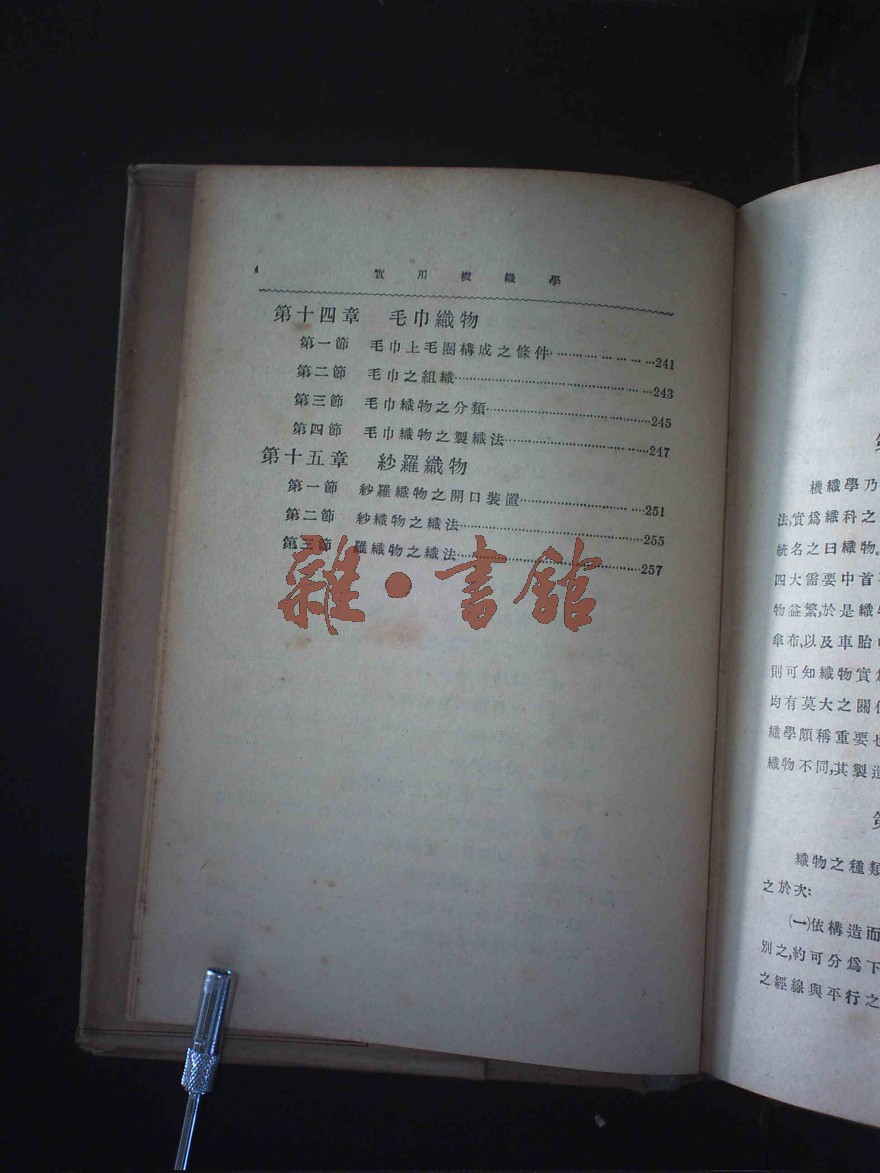 4 實用機織學
第十四章 毛巾織物
第一節 毛巾上毛圈構成之條件……………………241
第二節 毛巾之組織……………………243
第三節 毛巾織物之分類……………………245
第四節 毛巾織物之製織法……………………247
第十五章 紗羅織物
第一節 紗羅織物之開口裝置……………………251
第二節 紗織物之織法……………………255
第三節 羅織物之織法……………………257
雜·書館
機織學乃
法,實爲織科之
統名之曰織物。
四大需要中首
物益繁,於是織
傘布,以及車胎
則可知織物實
均有莫大之關
織學頗稱重要也
織物不同,其製造
第
織物之種類
之於次:
(一)依構造而
別之,約可分爲下
之經線與平行之